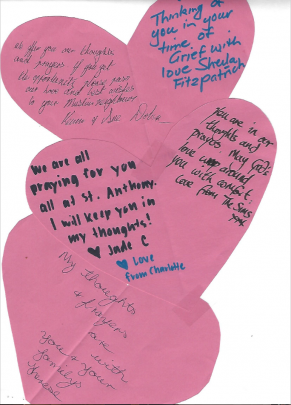 we offer you our thoughts
and prayers if you get
the opportunity please pass
our love and best wishes
to your Muslim neighbours
Thinking of
you in your
time of
Grief with
love Sheila
Fitzpatrick
You are in our
thoughts and
prayers may God's
love wrap around
you with comfort.
Love from The Sims
xxx
we are all
praying for you
all at St. Anthony.
I will keep you in
my thoughts!
♥ Jade C
♥ Love
from Charlotte
My thoughts
& prayers
are with
you & your
familys